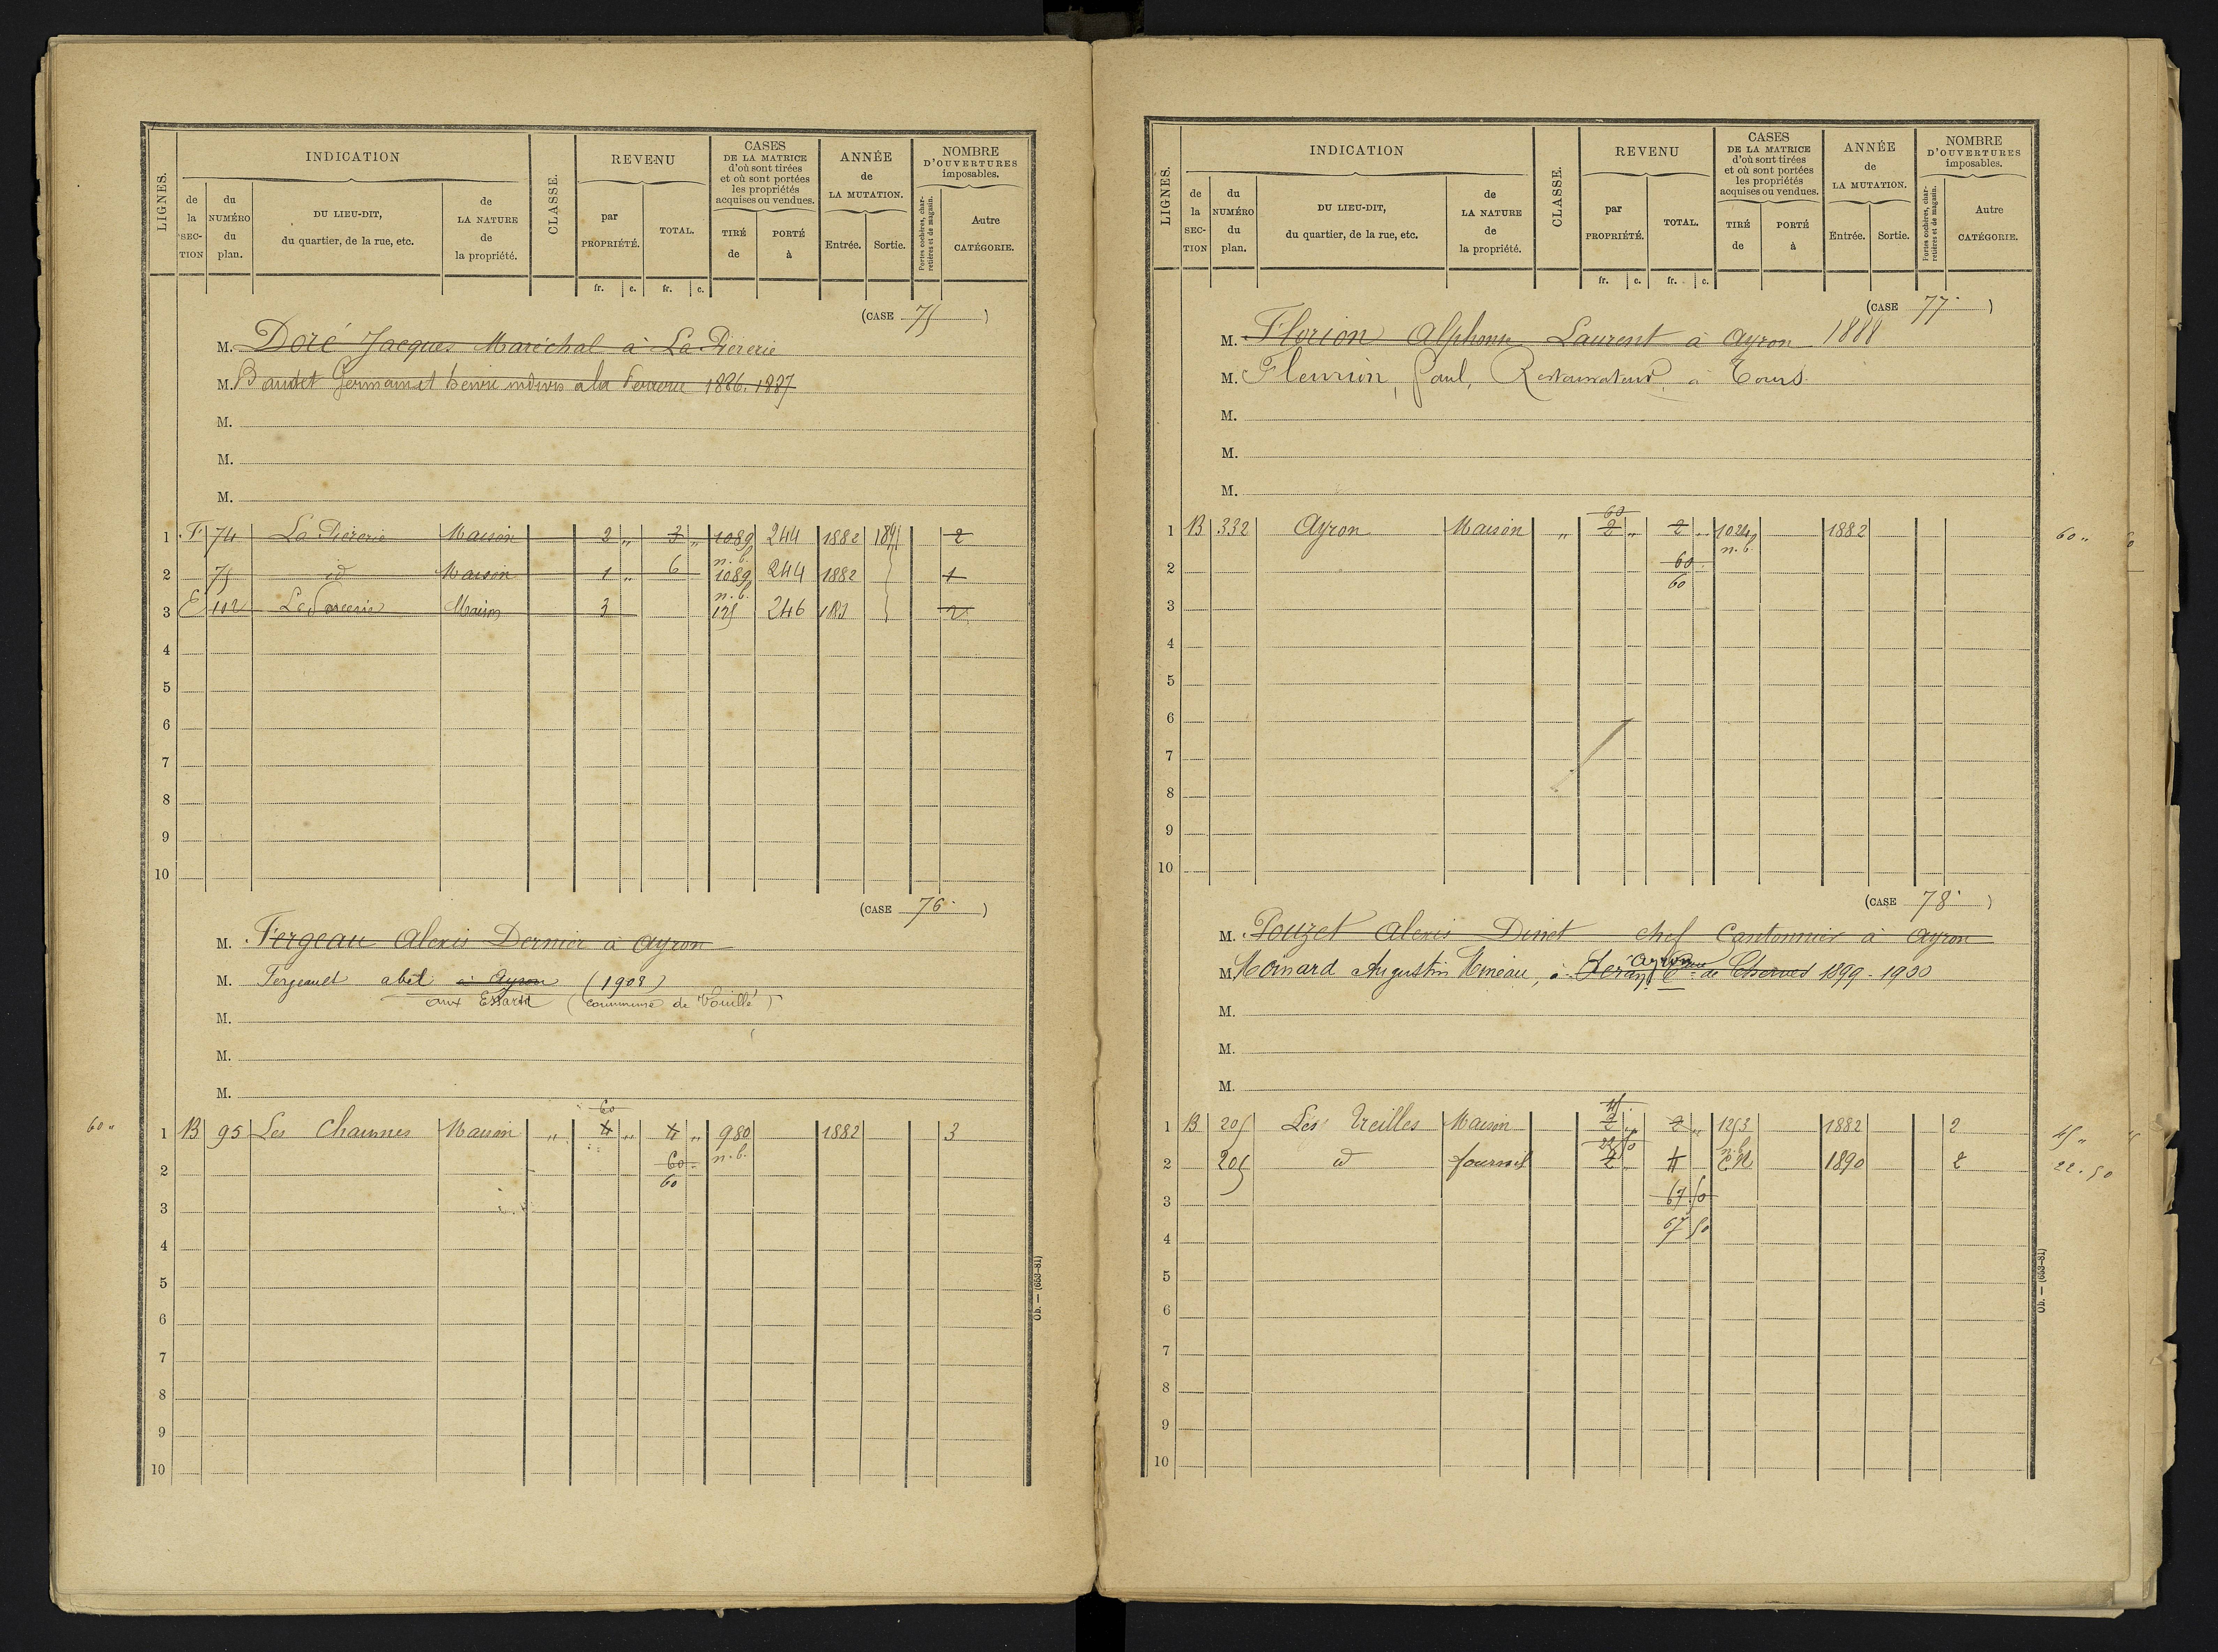 LIGNES.
INDICATION
CLASSE.
REVENU
CASES
DE LA MATRICE
d'où sont tirées
et où sont portées
les propriétés
acquises ou vendues.
ANNÉE
de
LA MUTATION.
NOMBRE
D'OUVERTURES
imposables.
de la SECTION
du NUMÉRO du plan.
DU LIEU-DIT,
du quartier, de la rue, etc.
de LA NATURE de la propriété.
par PROPRIÉTÉ.
TOTAL.
TIRÉ de
PORTÉ à
Entrée.
Sortie.
Portes cochères, charretières et de magasin.
Autre CATÉGORIE.
fr. c. fr. c.
(CASE 75)
M. Doré Jacques Maréchal à La
M. Baudet Germain et henri indivis à la 1886. 1887
M.
M.
M.
1 F 74 La Maison 2 " 3 " 1089 244 1882 1891 2
n. b.
2 75 id Maison 1 " 6 1089 244 1882 1
n. b.
3 E 102 Maison 3 125 246 2
4
5
6
7
8
9
10
(CASE 76)
M. Fergeau Alexis Dernier à Ayron
M. Fergeault abel à Ayron (1908)
aux Essarts (commune de Vouillé)
M.
M.
M.
60
60 "
1 B 95 Les Chaumes Maison " 4 " 4 " 980 1882 3
2 60 n. b.
60
3
4
5
6
7
8
9
10
Ob. — (653-81)
LIGNES.
INDICATION
CLASSE.
REVENU
CASES
DE LA MATRICE
d'où sont tirées
et où sont portées
les propriétés
acquises ou vendues.
ANNÉE
de
LA MUTATION.
NOMBRE
D'OUVERTURES
imposables.
de la SECTION
du NUMÉRO du plan.
DU LIEU-DIT,
du quartier, de la rue, etc.
de LA NATURE de la propriété.
par PROPRIÉTÉ.
TOTAL.
TIRÉ de
PORTÉ à
Entrée.
Sortie.
Portes cochères, charretières et de magasin.
Autre CATÉGORIE.
fr. c. fr. c.
(CASE 77)
M. Florion Alphonse Laurent à Ayron 1888
M. Fleurion, Paul, Restaurateur, à Tours.
M.
M.
M.
60
1 B 332 Ayron Maison " 2 " 2 " 1024 1882
n. b.
60 "
2 60
60
3
4
5
6
7
8
9
10
(CASE 78)
M. Pouzet Alexis Dinet chef Cantonnier à Ayron
Ayron
M. Moinard Augustin à de Cherves 1899 - 1900
M.
M.
M.
45
1 B 205 Les Treilles Maison 2 " 2 " 1253 1882 2
n. b.
45 "
22 50
2 205 id fournil 2 4 C.N 1890 2
22.50
3 67 50
67 50
4
5
6
7
8
9
10
Ob. — (653-81)